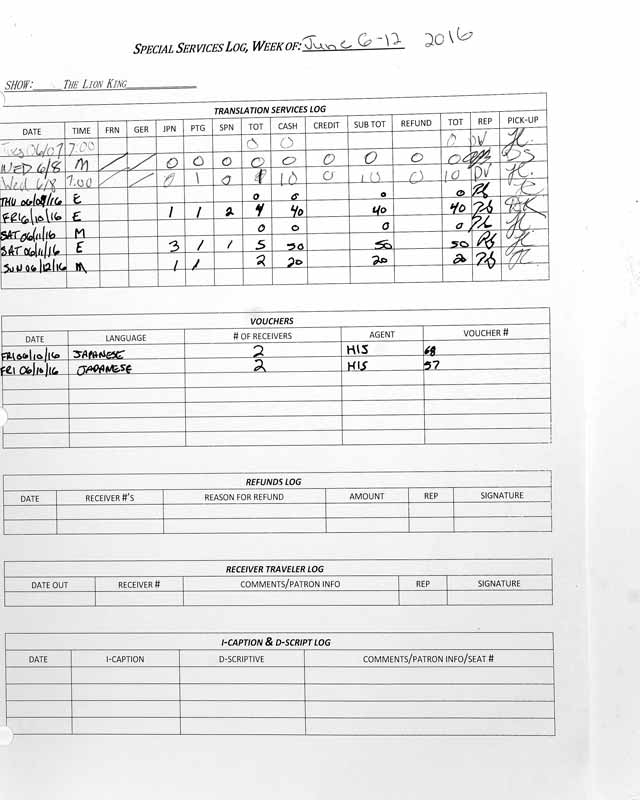 SPECIAL SERVICES LOG, WEEK OF: June 6-12 2016
SHOW: THE LION KING
TRANSLATION SERVICES LOG
DATE TIME FRN GER JPN PTG SPN TOT CASH CREDIT SUB TOT REFUND TOT REP PICK-UP
Tues 06/07 7:00 0 0 0 DV
WED 6/8 M 0 0 0 0 0 0 0 0 0 DS
Wed 6/8 7:00 0 1 0 1 10 0 10 0 10 DV
THU 06/09/16 E 0 0 0 0
FRI 6/10/16 E 1 1 2 4 40 40 40
SAT 06/11/16 M 0 0 0 0
SAT 06/11/16 E 3 1 1 5 50 50 50
SUN 06/12/16 M 1 1 2 20 20 20
VOUCHERS
DATE LANGUAGE # OF RECEIVERS AGENT VOUCHER #
FRI 06/10/16 JAPANESE 2 HIS 68
FRI 06/10/16 JAPANESE 2 HIS 57
REFUNDS LOG
DATE RECEIVER #'S REASON FOR REFUND AMOUNT REP SIGNATURE
RECEIVER TRAVELER LOG
DATE OUT RECEIVER # COMMENTS/PATRON INFO REP SIGNATURE
I-CAPTION & D-SCRIPT LOG
DATE I-CAPTION D-SCRIPTIVE COMMENTS/PATRON INFO/SEAT #